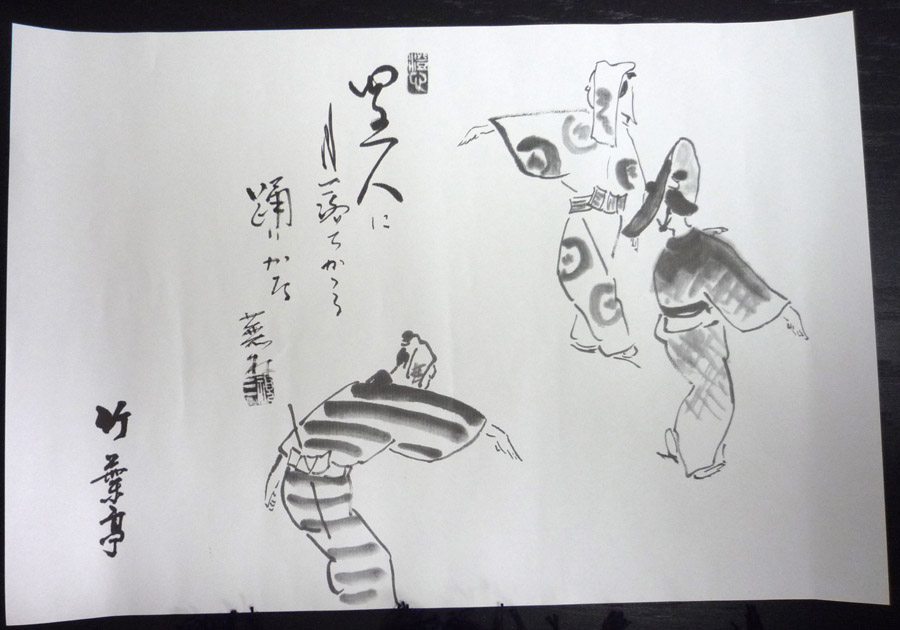 四五人に
月落ちかゝる
踊りかな
蕪村
竹葉亭